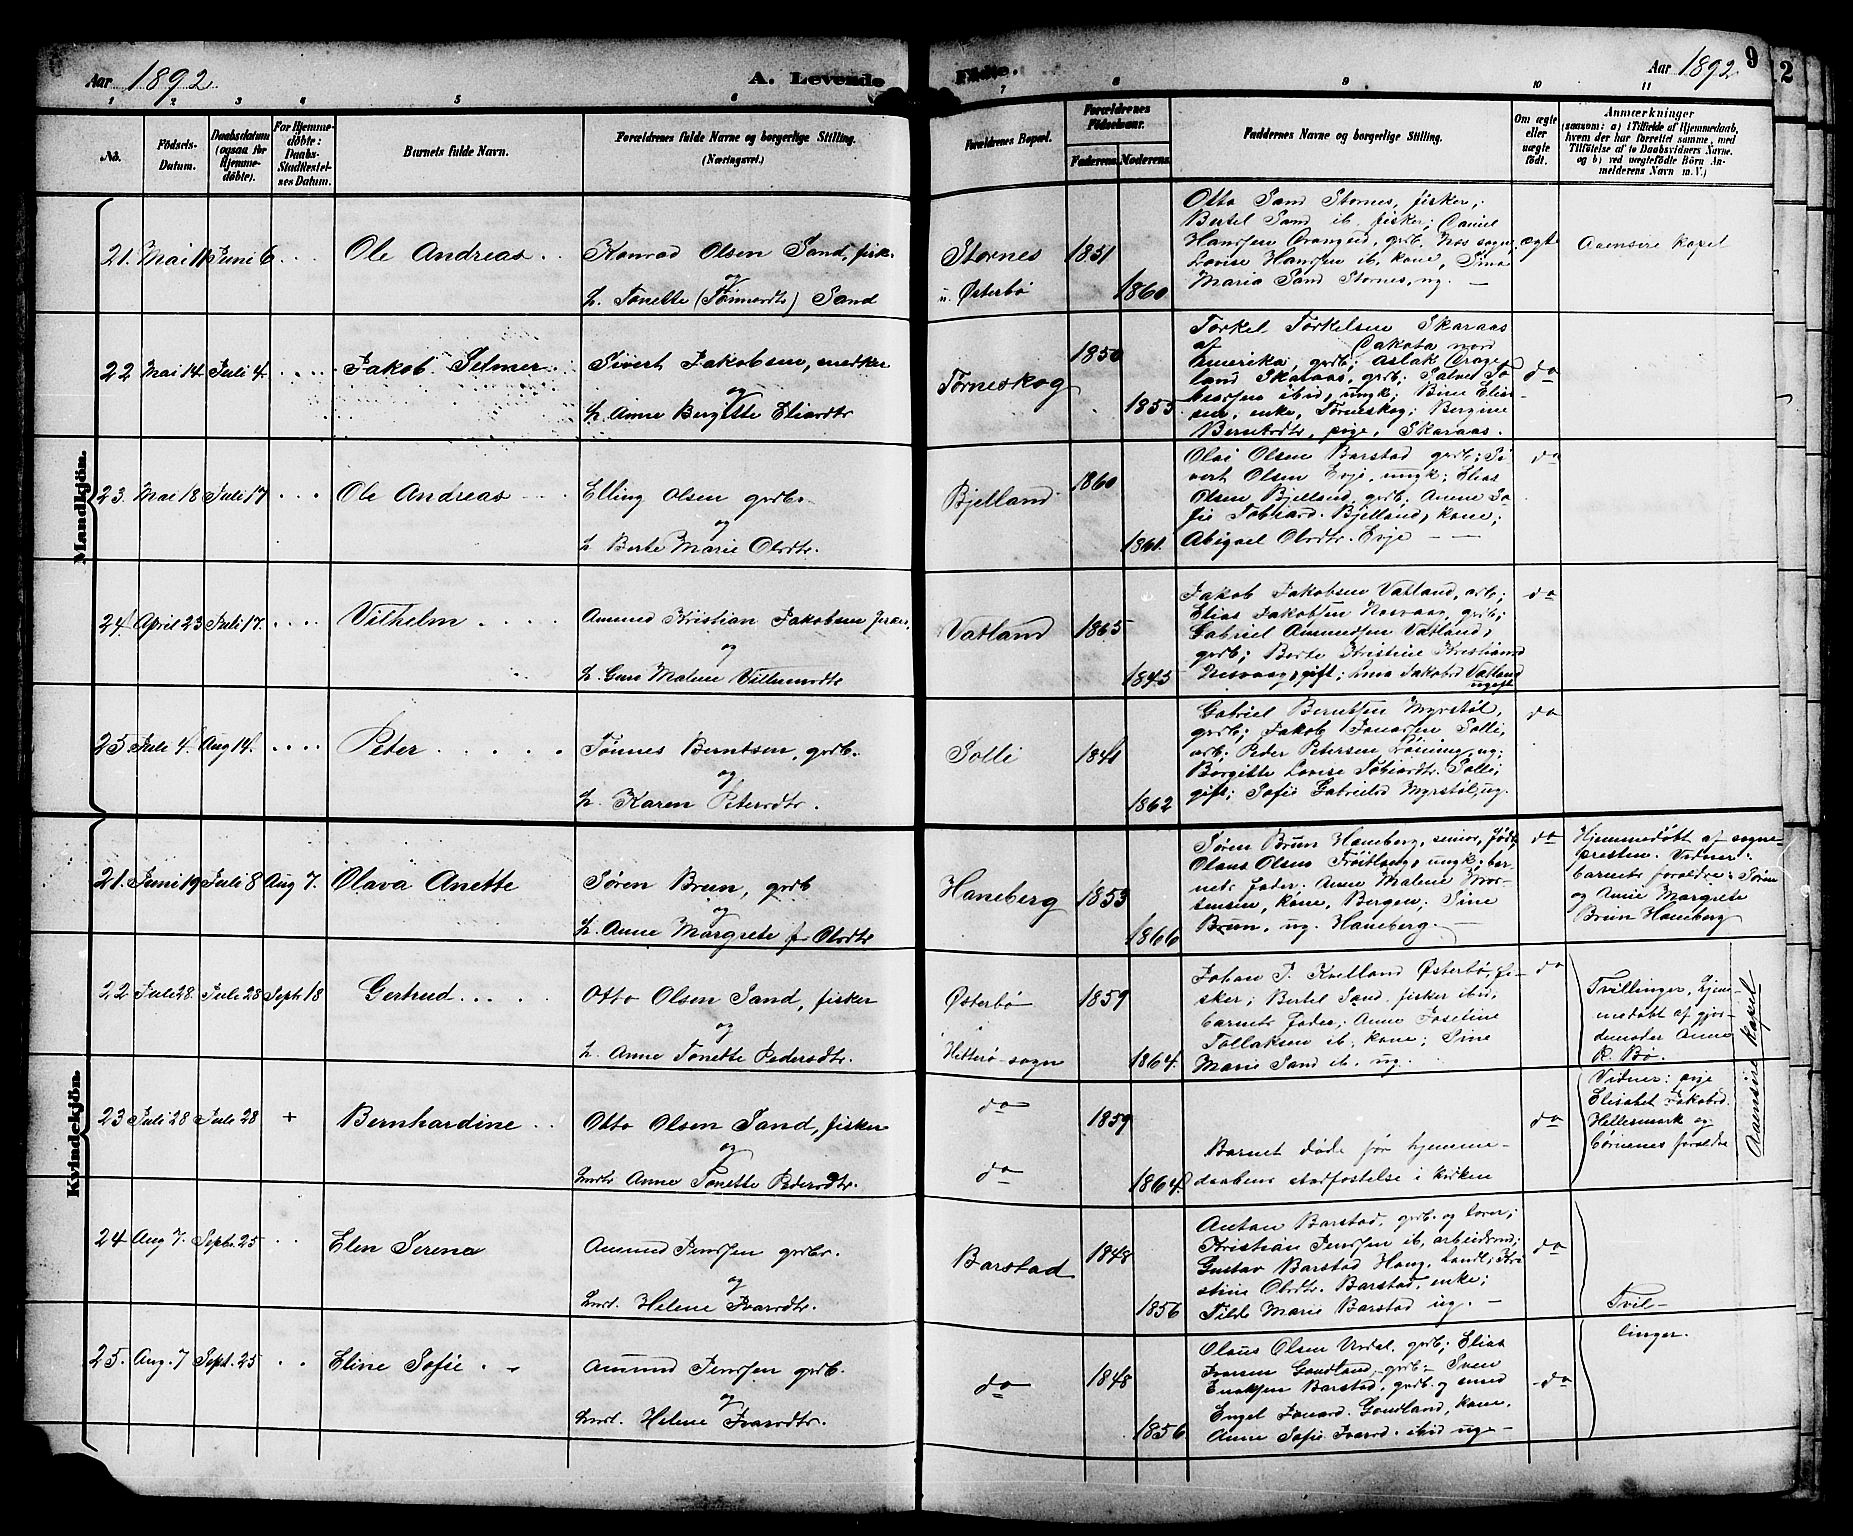 Aar 1892
A. Levende
Fødte.
Aar 1892
9
2
1 2 3 4 5 6 7 8 9 10 11
No.
Fødsels-
Datum.
Daabsdatum
(ogsaa for
Hjemme-
døbte).
For Hjemme-
døbte:
Daabs-
Stadfæstel-
ses Datum.
Barnets fulde Navn.
Forældrenes fulde Navne og borgerlige Stilling.
(Næringsvei.)
Forældrenes Bopæl.
Forældrenes
Fødselsaar.
Faderens. Moderens.
Faddernes Navne og borgerlige Stilling.
Om ægte
eller
uægte
født.
Anmærkninger
(saasom: a) i Tilfælde af Hjemmedaab,
hvem der har forrettet samme, med
Tilføielse af to Daabsvidners Navne.
og b) ved uægtefødte Börn An-
melderens Navn m. V.)
Mandkjön.
21. Mai 11 Juni 6 Ole Andreas Konrad Olsen Sand, fisk.
og
h. Tonette Sand
Stornes
u. Østerbø
1851
1860
Otto Sand Stornes, fisker;
Bertel Sand ib. fisker; Daniel
Hanssen grdb. Nes sogn,
Lovise Hanssen ib. kone, Sina
Maria Sand Stornes, ug. —
ægte
Aaensire kapel
22 Mai 14. Juli 4. Jakob Selmer Sivert Jakobsen, snedker
og
h. Anne Bergitte Eliasdtr
Torneskog
1850
1853
Torkel Torkelsen Skaraas
af Dakota nord
Amerika, grdb; Aslak
land Skaraas, grdb; Salve To
ibid, ungk; Elias
sen, enke, Torneskog; Bergine
Berntsdtr, pige, Skaraas.
do
23. Mai 18 Juli 17 Ole Andreas Elling Olsen grdbr.
og
h. Berte Marie Olsdtr.
Bjelland
1860
1861.
Olai Olsen Barstad grdb; Si
vert Olsen Evje, ungk; Elias
Olsen Bjelland, grdb. Anne So
fie Tobiasd. Bjelland, kone;
Abigael Olsdtr. Evje — —
do
24. April 23 Juli 17. Vilhelm Amund Kristian Jakobsen
og
h. Guro Malene
Vatland
1865
1845
Jakob Jakobsen Vatland, arb;
Elias Jakobsen Nesvaag, grdb;
Gabriel Amundsen Vatland,
grdb; Berte Kristine Kristiansd
Nesvaag, gift; Lina Jakobsd Vatland
ugift
do
25 Juli 4. Aug 14. Peter Tönnes Berntsen, grdb.
og
h. Karen Petersdtr.
Solli
1841
1862
Gabriel Berntsen Myrstøl,
grdb; Jakob Jonassen Solli,
arb; Peder Petersen Løsning, ug;
Borgitte Lovise Tobiasdtr. Solli,
gift; Sofie Gabrielsd Myrstøl, ug.
do
Kvindekjön.
21. Juni 19 Juli 8 Aug 7. Olava Anette Søren Brun, grdb
og
h. Anne Margrete f. Olsdtr
Haneberg
1853
1866
Søren Brun Haneberg, senior, föde
Olaus Olsen ungk. bar
nets fader. Anne Malene Mor-
tensen, kone, Bergen; Sine
Brun, ug. Haneberg. —
do
Hjemmedøbt af sogne-
presten. Vidner:
barnets foraldre: Søren
og Anne Margrete
Brun Haneberg
22 Juli 28. Juli 28 Sept. 18 Gertrud Otto Olsen Sand, fisker
og
h. Anne Tonette Pedersdtr.
Østerbø
Hitterø sogn
1859
1864.
Johan P. Kvelland Østerbø, fi-
sker; Bertel Sand. fisker ibid,
barnets fader; Anne Josefine
Tollaksen ib. kone; Sine
Marie Sand ib. ug.
do
Tvillinger, hjem-
medøbt af gjor-
demoder Anne
R. Bø.
Aaensire kapel
23 Juli 28 Juli 28 + Bernhardine Otto Olsen Sand, fisker
og
hustr Anne Tonette Pedersdtr.
do
do
1859
1864.
Barnet døde før hjemme-
daabens stadfæstelse i kirken
do
Vidner: pige
Elisabet Jakobsd.
Hellesmark og
børnenes foraldre
24 Aug 7. Septbr. 25 Elen Serena Amund Jenssen grdbr.
og
hustr. Helene Ivarsdtr.
Barstad
1848
1856
Anton Barstad, grdb. og lærer;
Kristian Jenssen ib, arbeidsmd;
Gustav Barstad Haug, Landl; Kri
stine Olsdtr. Barstad, enke;
Tilde Marie Barstad ug. —
do
Tvil-
linger.
25. Aug. 7 Sept. 25 Eline Sofie Amund Jenssen grdb.
og
hustr. Helene Ivarsdtr.
do
1848
1856
Olaus Olsen Urdal, grdb; Elias
Ivarsen Goudland, grdb; Sven
Enoksen Barstad, grdb. og smed
Engel Jonasd. Goudland, kone,
Anne Sofie Ivarsd. ibid ug—
do